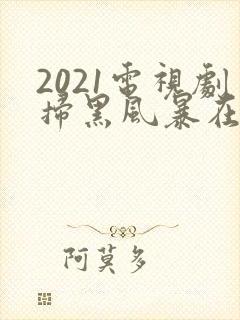 2021電視劇
掃黑風暴在
阿莫多